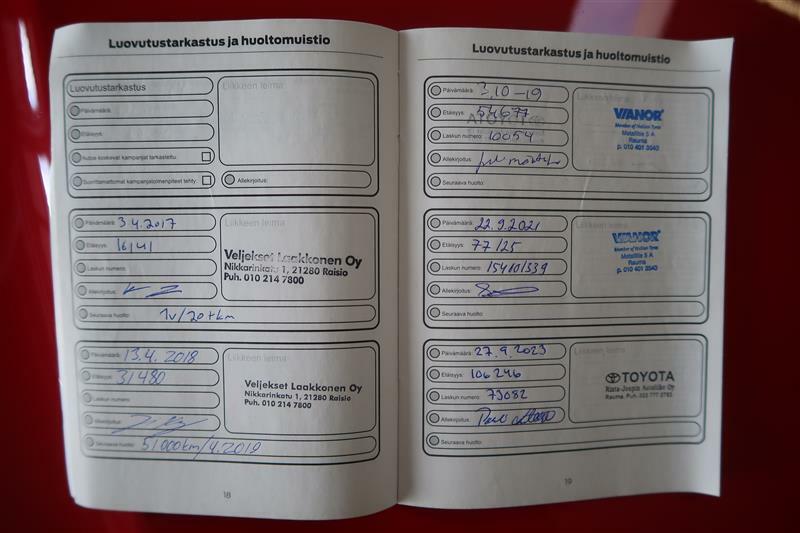 Luovutustarkastus ja huoltomuistio
Luovutustarkastus
Liikkeen leima
Päivämäärä:
Etäisyys:
Autoa koskevat kampanjat tarkastettu:
Suorittamattomat kampanjatoimenpiteet tehty:
Allekirjoitus:
Päivämäärä: 3.4.2017
Liikkeen leima
Etäisyys: 16141
Laskun numero:
Allekirjoitus:
Veljekset Laakkonen Oy
Nikkarinkatu 1, 21280 Raisio
Puh. 010 214 7800
Seuraava huolto: 1v/20tkm
Päivämäärä: 13.4.2018
Liikkeen leima
Etäisyys: 31480
Laskun numero:
Allekirjoitus:
Veljekset Laakkonen Oy
Nikkarinkatu 1, 21280 Raisio
Puh. 010 214 7800
Seuraava huolto: 51000km/4.2019
18
Luovutustarkastus ja huoltomuistio
Päivämäärä: 3.10-19
Liikkeen leima
Etäisyys: 54677
Laskun numero: 10054
Allekirjoitus:
VIANOR
Member of Nokian Tyres
Metallitie 5 A
Rauma
p. 010 401 3540
Seuraava huolto:
Päivämäärä: 22.9.2021
Liikkeen leima
Etäisyys: 77125
Laskun numero: 154101339
Allekirjoitus:
VIANOR
Member of Nokian Tyres
Metallitie 5 A
Rauma
p. 010 401 3540
Seuraava huolto:
Päivämäärä: 27.9.2023
Liikkeen leima
Etäisyys: 106246
Laskun numero: 73082
Allekirjoitus:
TOYOTA
Rinta-Joupin Autoliike Oy
Rauma, Puh.
Seuraava huolto:
19